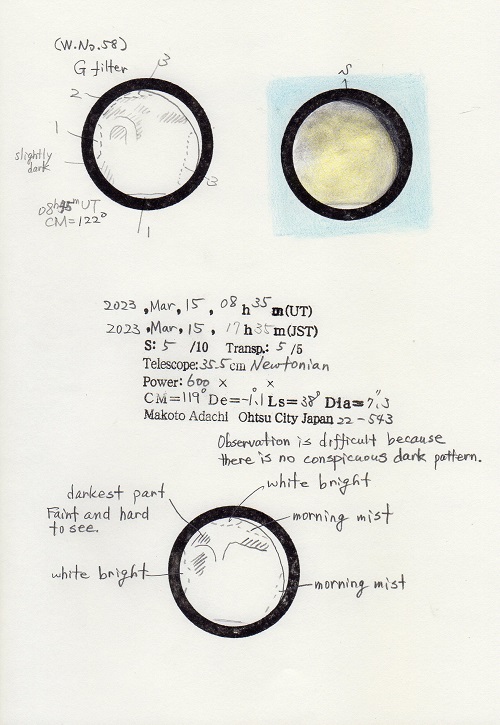 (W.No.58)
G filter
3
2
1
slightly
dark
3
08h45m UT
CM=122°
1
S
2023, Mar, 15, 08h35m(UT)
2023, Mar, 15, 17h35m(JST)
S: 5 /10 Transp.: 5 /5
Telescope: 35.5cm Newtonian
Power: 600 × ×
CM=119° De=-1.1° Ls=38° Dia=7".3
Makoto Adachi Ohtsu City Japan 22-543
Observation is difficult because
there is no conspicuous dark pattern.
white bright
darkest part
Faint and hard
to see.
morning mist
white bright
morning mist